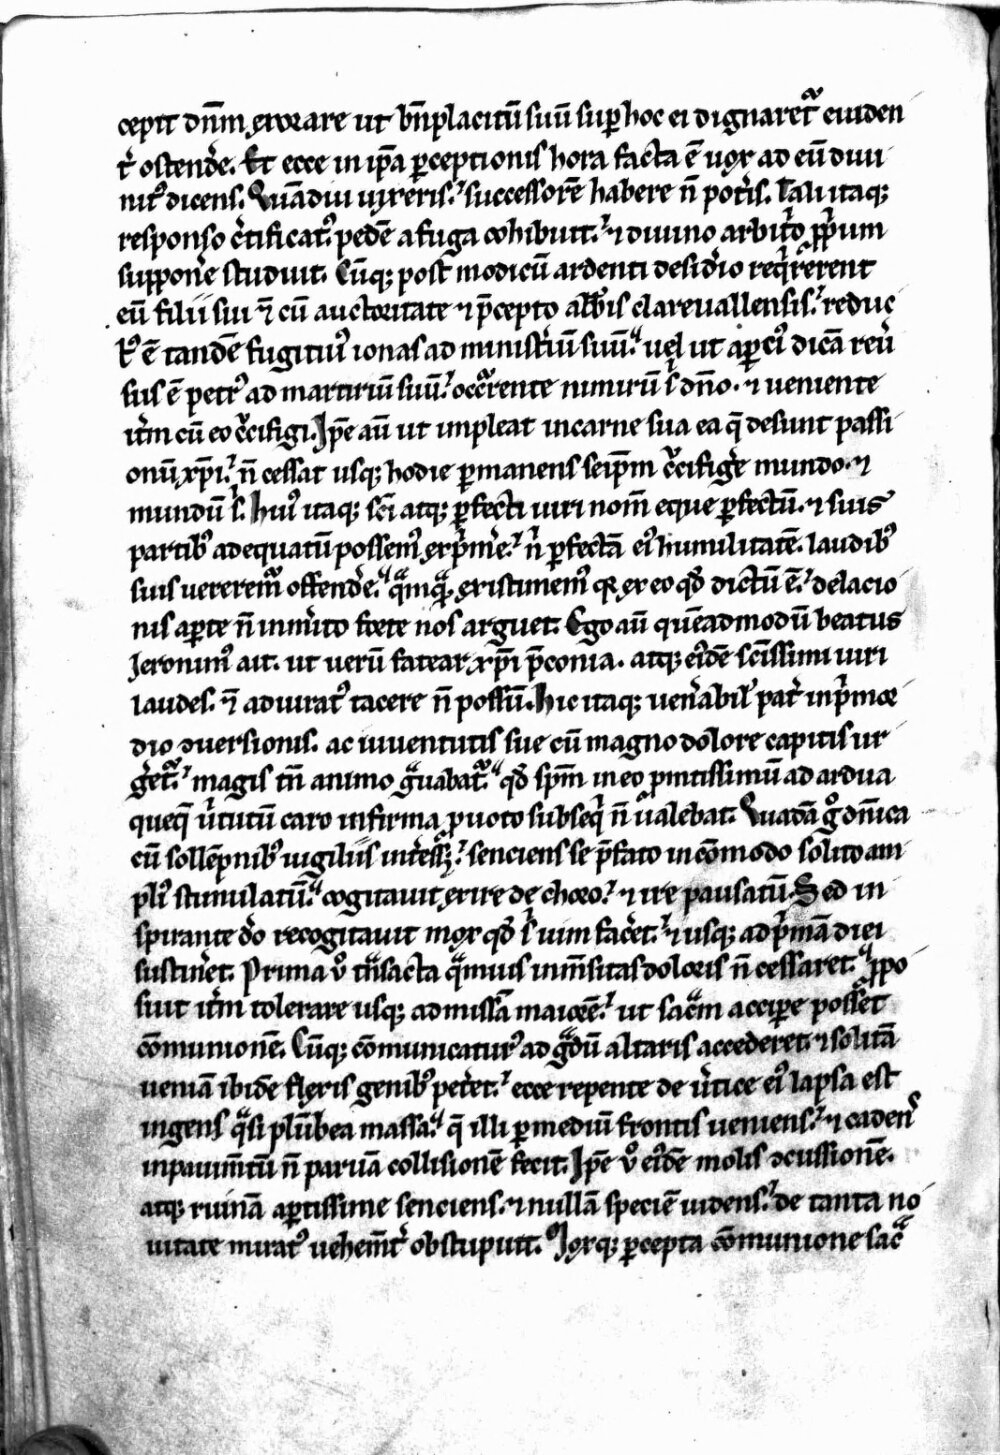 cepit dn̄m exorare ut bn̄placitū suū sup hoc ei dignaretᷓ euiden
t̓ ostend̓e. Et ecce in ip̄a ꝑceptionis hora facta ē uox ad eū diui
nitꝰ dicens. Quādiu uixeris.ˀ successorē habere n̄ pot̓is. Tali itaqꝫ
responso c̓tificatꝰ pedē a fuga cohibuit.ˀ ⁊ diuino arbit̓o ꝓp̓um
suppon̓e studuit. Cūqꝫ post modicū ardenti desid̓io req̓rerent
eū filii sui ⁊̄ cū auctoritate ⁊ p̄cepto abb̄is clareuallensis.ˀ reduc
tꝰ ē tandē fugitiuꝰ ionas ad minist̓iū suū.ˀ uel ut aꝑciꝰ dicā reu̓
sus ē petrꝰ ad martiriū suū.ˀ occᷓrente nimirū s̓ dn̄o. ⁊ ueniente
it̓m cū eo c̓cifigi. Ip̄e aū ut impleat in carne sua ea q̄ desunt passi
onū xp̄i.ˀ n̄ cessat usqꝫ hodie ꝑmanens seip̄m c̓cifig̓e mundo. ⁊
mundū s̓. Huiꝰ itaqꝫ sc̄i atqꝫ ꝑfecti uiri nom̄ eque ꝑfectū. ⁊ suis
partibꝰ adequatū possemꝰ exp̓m̓e.ˀ n̓ ꝑfectā eiꝰ humilitatē. laudibꝰ
suis uereremᷓ offend̓e. qᷓmqᷓ existimemꝰ qꝛ ex eo qd̓ dictū ē.ˀ delacio
nis aꝑte n̄ inm̓ito forte nos arguet. Ego aū quēadmodū beatus
Jeronimꝰ ait. ut uerū fatear xp̄i p̄conia. atqꝫ eiꝰdē sc̄issimi uiri
laudes. ⁊̄ adiuratꝰ tacere n̄ possū. Hic itaqꝫ uen̓abil̓ pat̓ in p̓mor
dio ꝯuersionis. ac iuuentutis sue cū magno dolore capitis ur
g̓etᷓ.ˀ magis tn̄ animo gᷓuabatᷓ. qd̓ sp̄m in eo ꝓmtissimū ad ardua
queq̄ u̓tutū caro infirma ꝓ uoto subseq̓ n̄ ualebat. Quadā g° dn̄ica
cū sollēpnibꝰ uigiliis int̓ess̓.ˀ senciens se p̄fato incōmodo solito am
pliꝰ stimulatū. cogitauit exire de choro.ˀ ⁊ ire pausatū. Sed in
spirante dō recogitauit mox qd̓ s̓ uim fac̓et.ˀ ⁊ usqꝫ ad p̓mā diei
sustin̓et. Prima u° tᷓnsacta qᷓmuis inm̄sitas doloris n̄ cessaret. ꝓpo
suit it̓m tolerare usqꝫ ad missā maiorē.ˀ ut sacᷓm acciꝑe posset
cōmunionē. Cūqꝫ cōmunicaturꝰ ad gᷓdū altaris accederet. ⁊ solitā
ueniā ibidē flexis genibꝰ pet̓et.ˀ ecce repente de u̓tice eiꝰ lapsa est
ingens qᷓsi plūbea massa. q̄ illi ꝑ mediū frontis ueniens.ˀ ⁊ cadens
in pauim̄tū n̄ paruā collisionē fecit. Ip̄e u° eiꝰdē molis ꝯcussionē.
atqꝫ ruinā aꝑtissime senciens. ⁊ nullā speciē uidens.ˀ de tanta no
uitate miratꝰ uehem̄t̓ obstupuit. Moxqꝫ ꝑcepta cōmunione sacᷓ